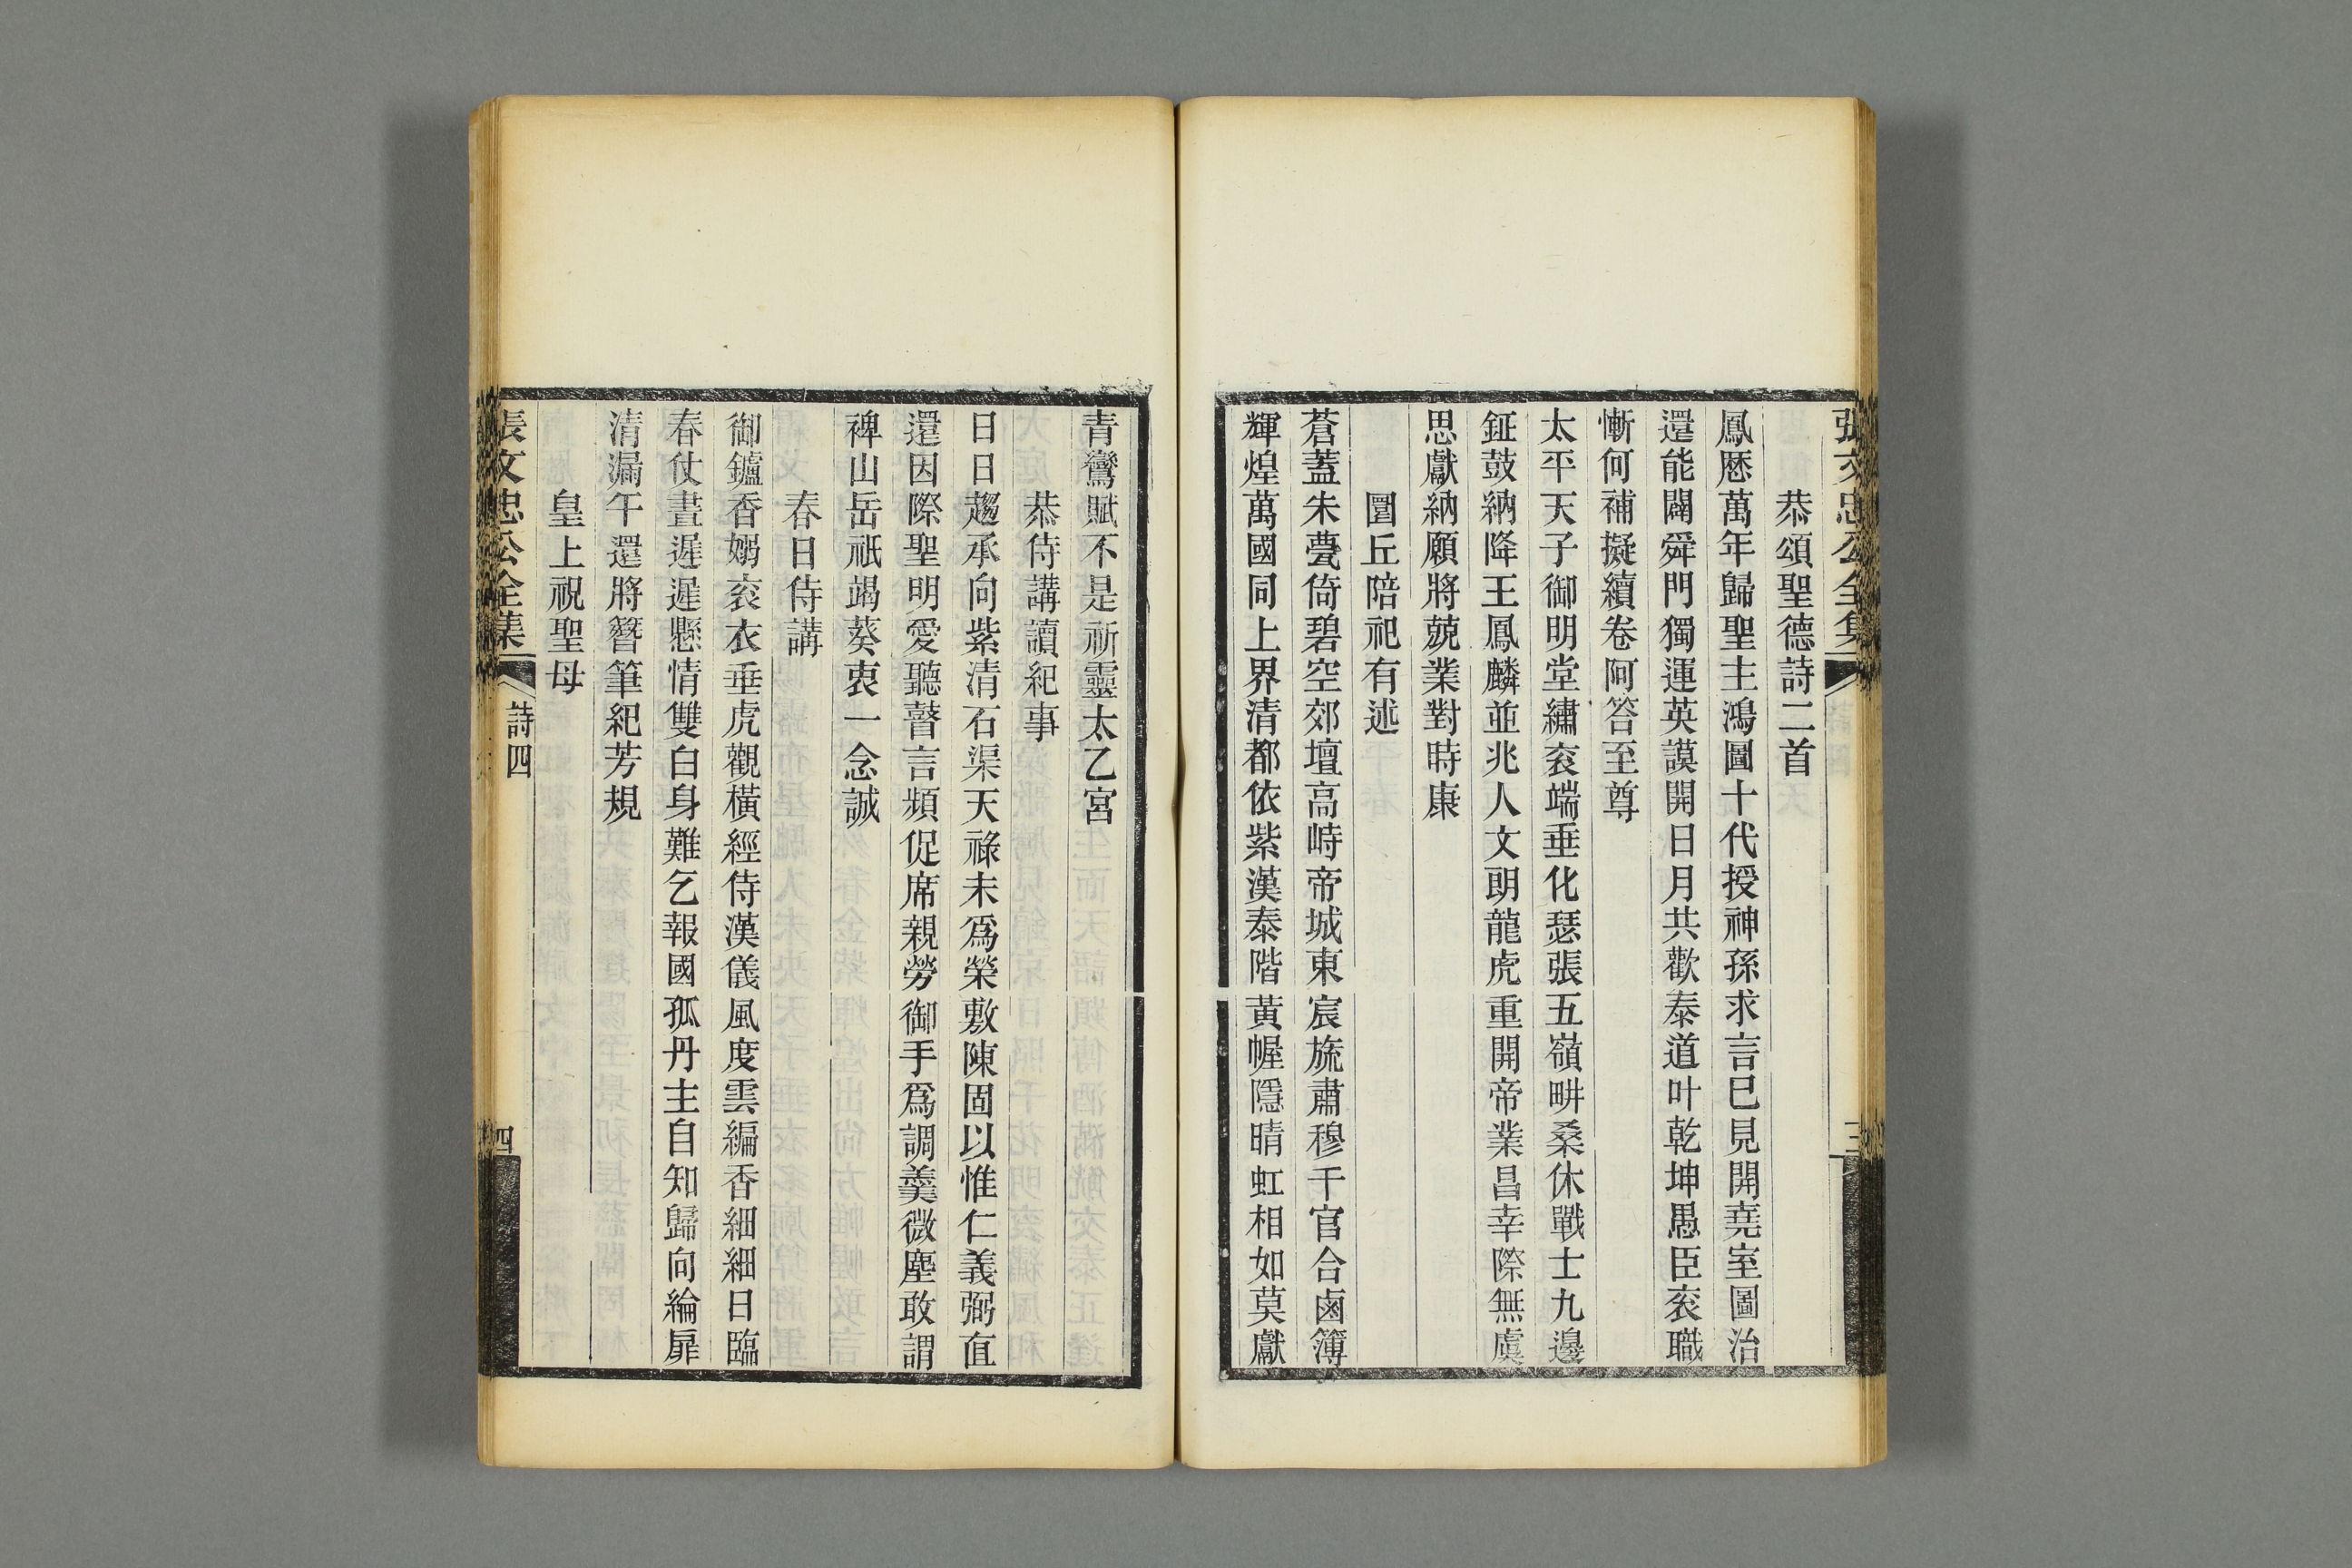 張文忠公全集
三
恭頌聖德詩二首
鳳厯萬年歸聖主鴻圖十代授神孫求言巳見開堯室圖治
還能闢舜門獨運英謨開日月共歡泰道叶乾坤愚臣衮職
慚何補擬續卷阿答至尊
太平天子御明堂繡衮端垂化瑟張五嶺畊桑休戰士九邊
鉦鼓納降王鳳麟並兆人文朗龍虎重開帝業昌幸際無虞
思獻納願將兢業對時康
圜丘陪祀有述
蒼蓋朱甍倚碧空郊壇高峙帝城東宸旒肅穆千官合鹵簿
輝煌萬國同上界清都依紫漢泰階黃幄隱晴虹相如莫獻
青鸞賦不是祈靈太乙宮
恭侍講讀紀事
日日趨承向紫清石渠天祿未爲榮敷陳固以惟仁義弼直
還因際聖明愛聽瞽言頻促席親勞御手爲調羹微塵敢謂
裨山岳祇竭葵衷一念誠
春日侍講
御鑪香嫋衮衣垂虎觀橫經侍漢儀風度雲編香細細日臨
春仗晝遲遲懸情雙白身難乞報國孤丹主自知歸向綸扉
清漏午還將簪筆紀芳規
皇上祝聖母
張文忠公全集
詩四
四